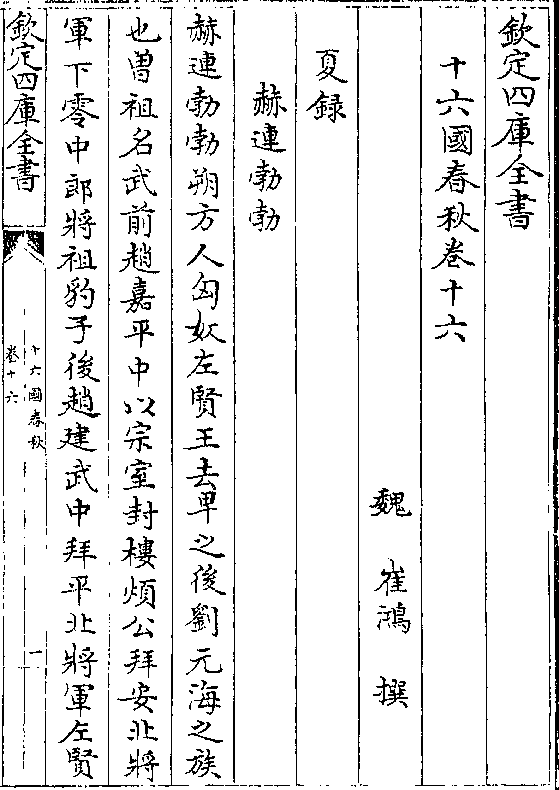 欽定四庫全書
十六國春秋卷十六
魏 崔鴻 撰
夏録
赫連勃勃
赫連勃勃朔方人匈奴左賢王去卑之後劉元海之族
也曽祖名武前趙嘉平中以宗室封樓煩公拜安北將
軍下零中郎將祖豹子後趙建武中拜平北將軍左賢
欽定四庫全書
十六國春秋
卷十六
一